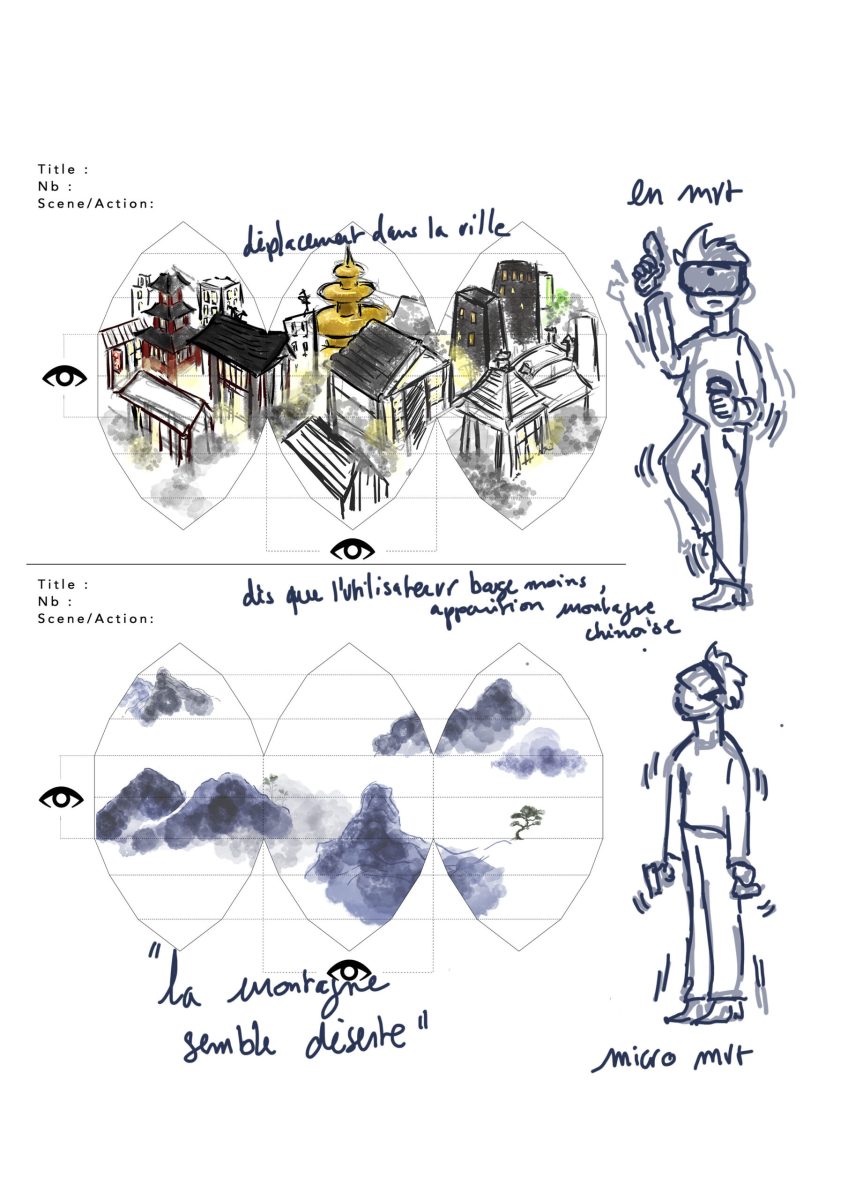 Title :
Nb :
Scene/Action:
en mvt
déplacement dans la ville
Title :
Nb :
Scene/Action:
dès que l'utilisateur bouge moins,
apparition montagne
chinoise
"la montagne
semble déserte"
micro mvt